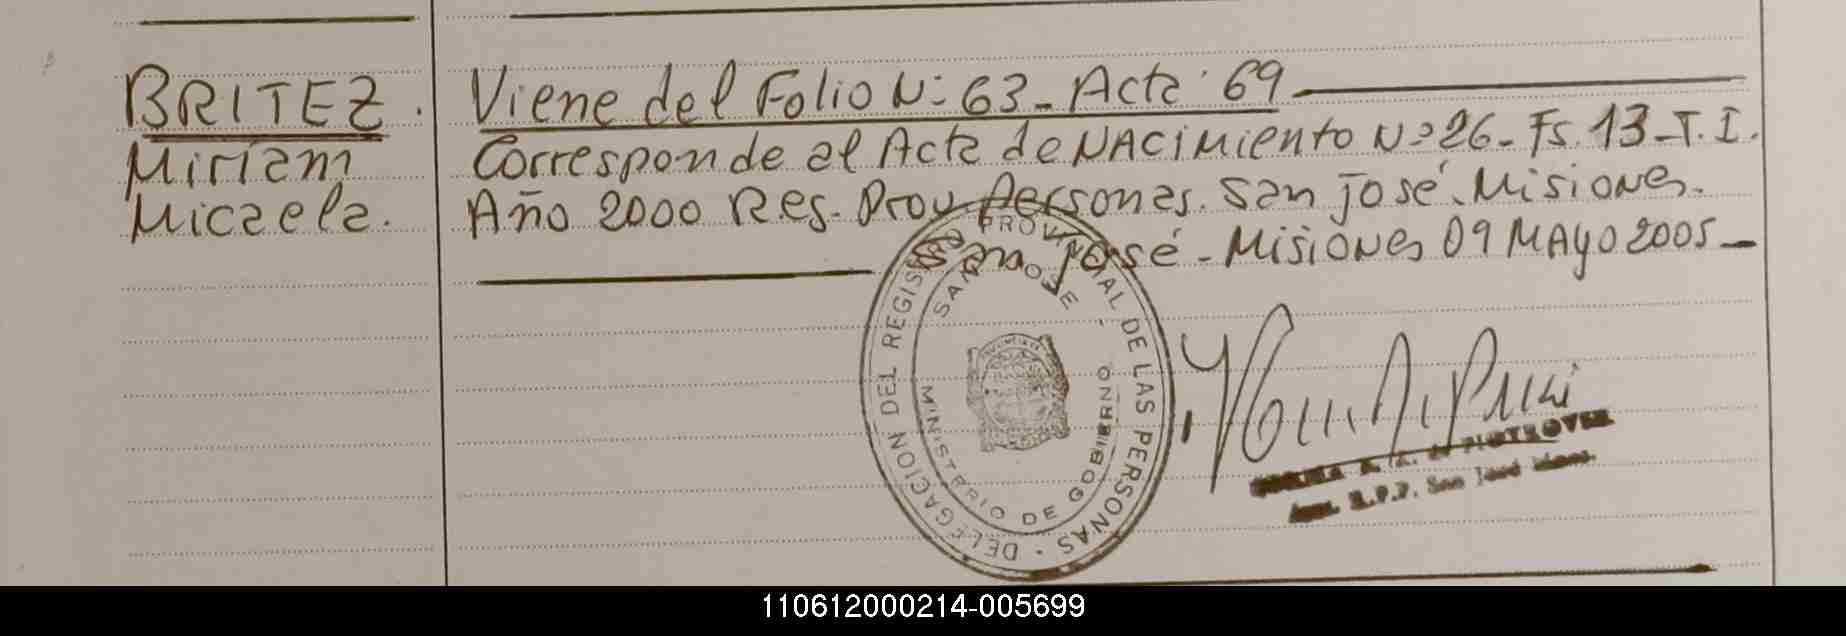 BRITEZ
Miriam
Micaela.
Viene del Folio N: 63_ Acta 69
Corresponde al Acta de NACiMiento N=26_ Fs. 13_T. I.
Año 2000 Reg. Prov. Personas. San José. Misiones.
San José - Misiones 09 MAYO 2005_
DELEGACION DEL REGISTRO PROVINCIAL DE LAS PERSONAS -
SAN JOSE -
MINISTERIO DE GOBIERNO
R.P.P. San José
110612000214-005699